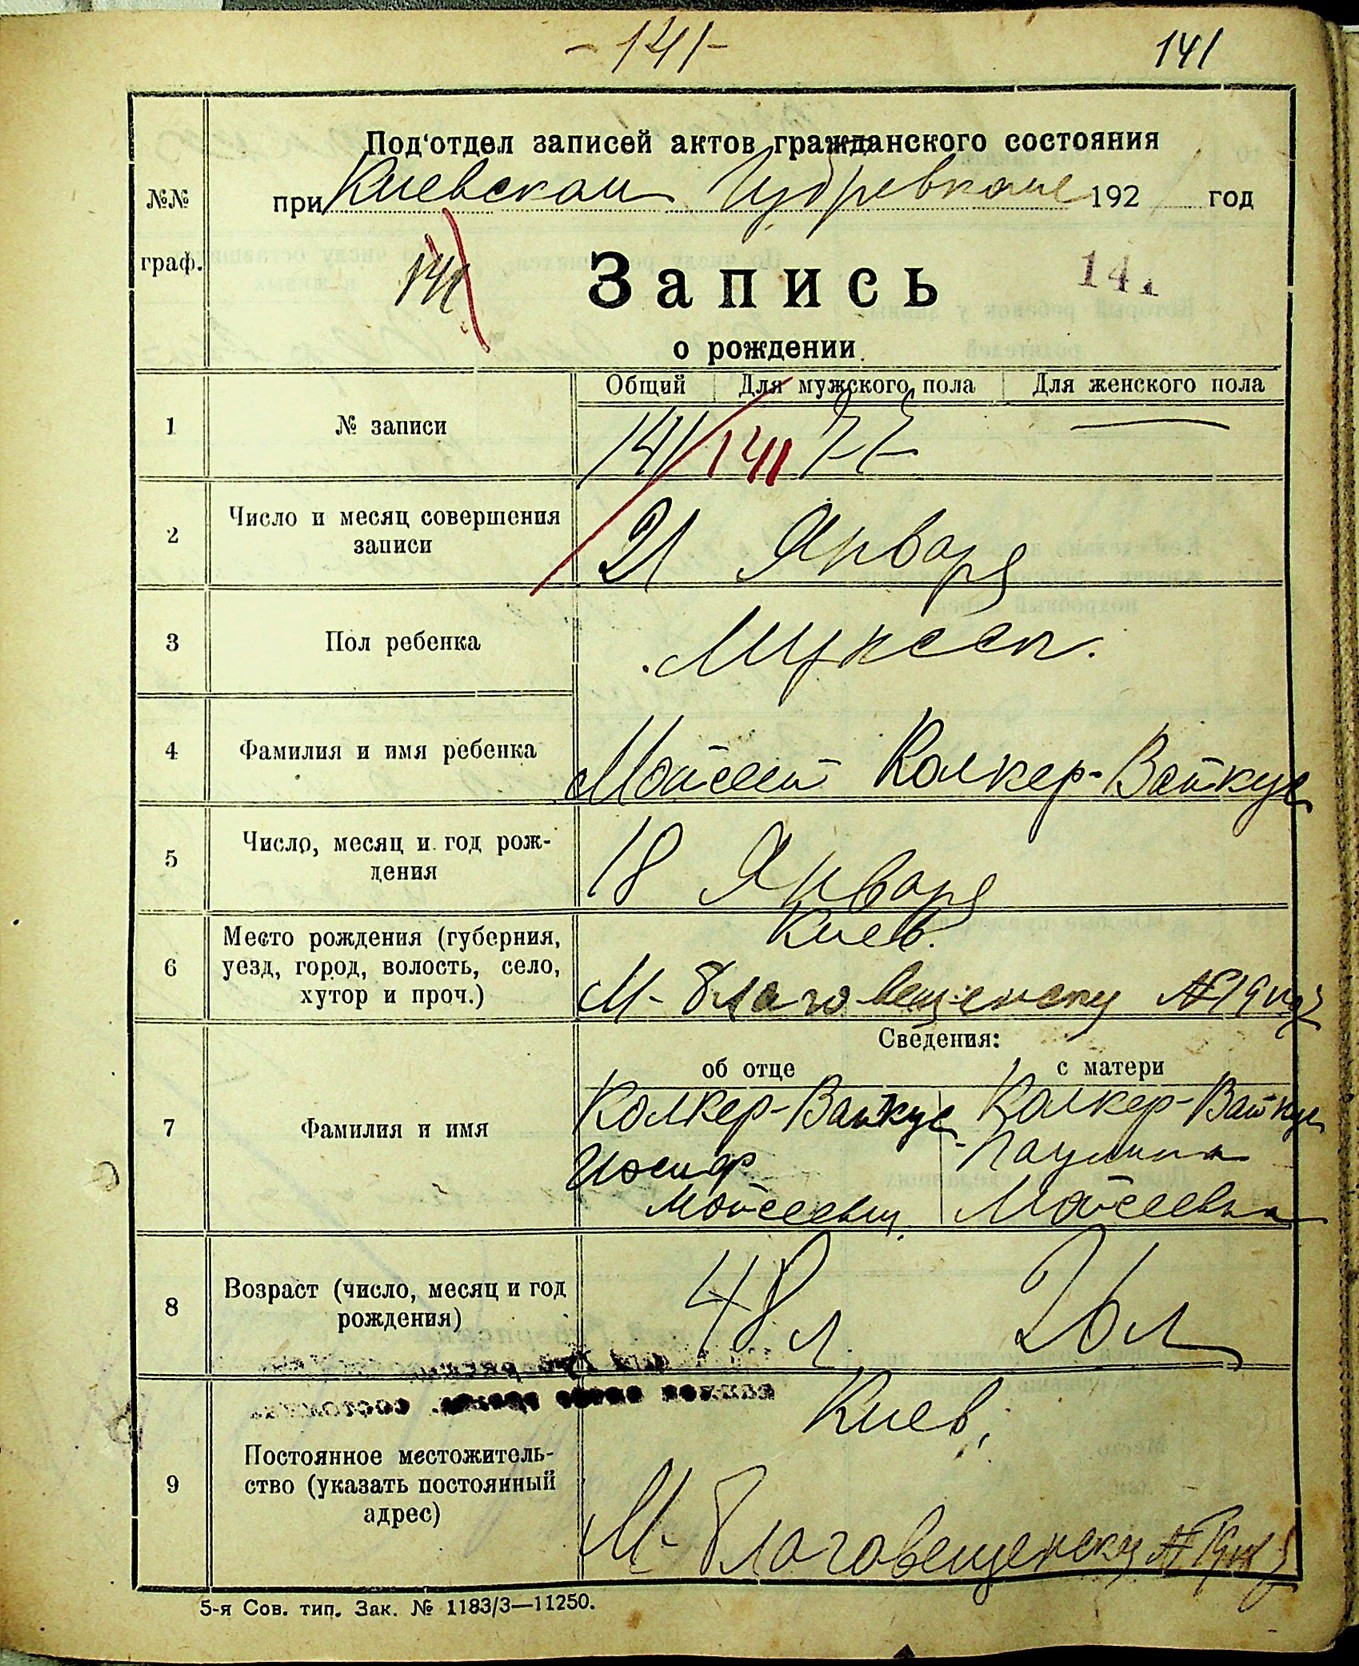 - 141 -
141
Под'отдел записей актов гражданского состояния
при Киевском Губревкоме 192 год
№№ граф.
141
Запись
141
о рождении
Общий Для мужского пола Для женского пола
1 № записи 141 141 77 —
2 Число и месяц совершения
записи
21 Января
3 Пол ребенка
4 Фамилия и имя ребенка Мойсей Колкер-Вайкус
5 Число, месяц и год рож-
дения
18 Января
6 Место рождения (губерния,
уезд, город, волость, село,
хутор и проч.)
Киев.
М-Благовещенску № 19
Сведения:
об отце с матери
7 Фамилия и имя
Колкер-Вайкус Колкер-Вайкус
Иосиф Паулина
Мойсеевич Мойсеевна
8 Возраст (число, месяц и год
рождения)
48 л. 26 л
9 Постоянное местожитель-
ство (указать постоянный
адрес)
Киев,
М-Благовещенску № 19
5-я Сов. тип. Зак. № 1183/3—11250.